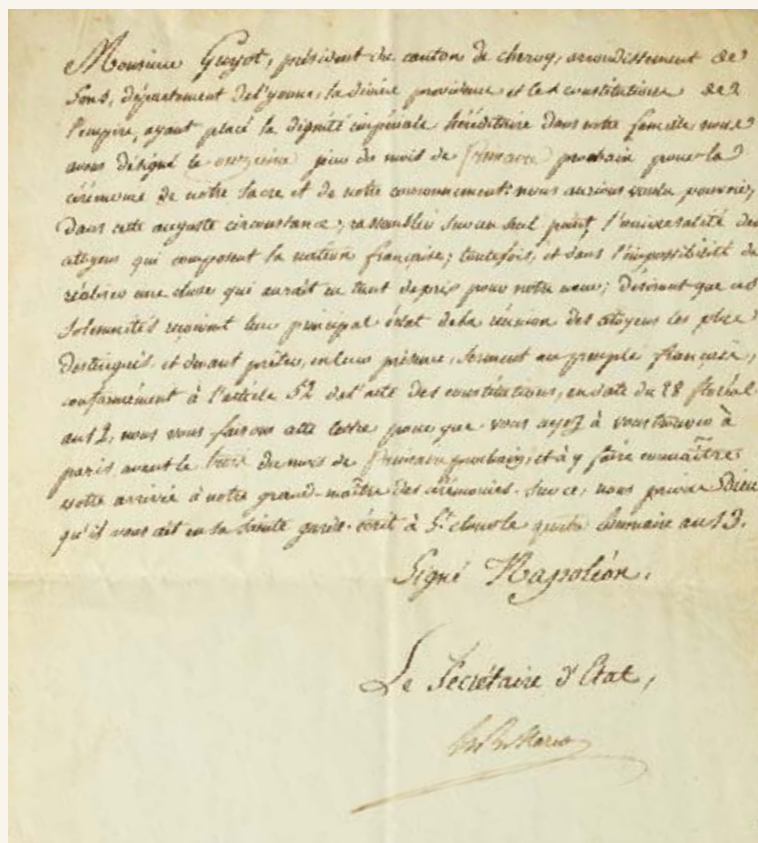 Monsieur Guyot, président du canton de cheroy, arrondissement de
Sens, département de l'yonne, la divine providence et les constitutions de
l'empire, ayant placé la dignité impériale héréditaire dans notre famille nous
avons désigné le onzieme jour du mois de frimaire prochain pour la
cérémonie de notre sacre et de notre couronnement: nous aurions voulu pouvoir,
dans cette auguste circonstance, rassembler sur un seul point, l'universalité des
citoyens qui composent la nation française; toutefois, et dans l'impossibilité de
réaliser une chose qui aurait eu tant de prix pour notre cœur; désirant que ces
solemnités reçoivent leur principal éclat de la réunion des citoyens les plus
distingués et devant prêter, en leur présence, serment au peuple français,
conformément à l'article 52 de l'acte des constitutions, en date du 28 floréal
an 12, nous vous faisons cette lettre pour que vous ayez à vous trouver à
paris avant le du mois de frimaire prochain, et à y faire connaître
votre arrivée à notre grand-maître des cérémonies. Sur ce, nous prions Dieu
qu'il vous ait en sa sainte garde. écrit à St. cloud le quatre brumaire an 13.
Signé Napoléon.
Le Secrétaire d'Etat,